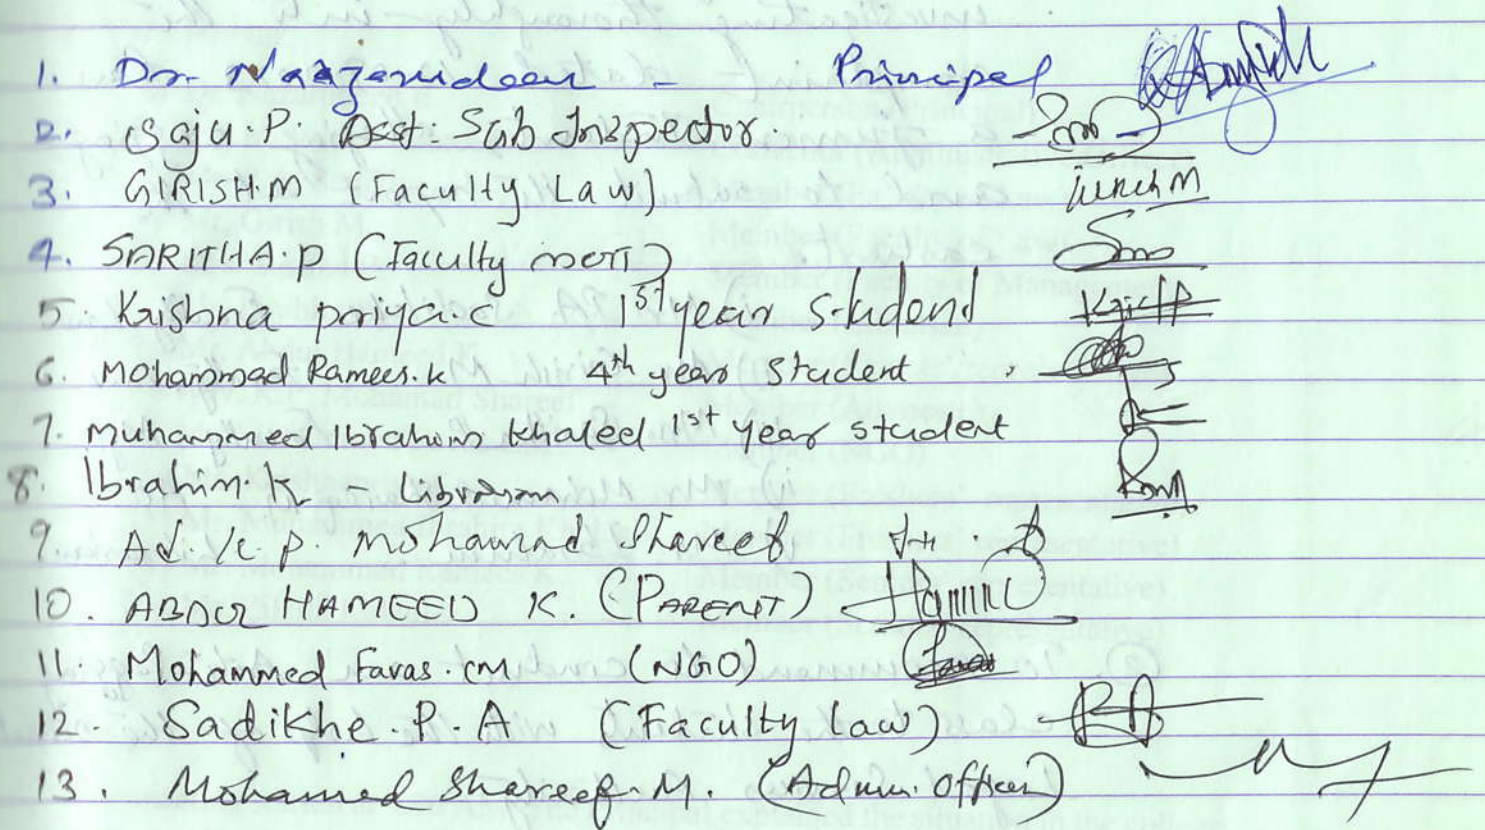 1. Dr. Naazerudeen - Principal
2. Saju.P. Asst: Sub Inspector.
3. GIRISH.M (Faculty Law) Girish M
4. SARITHA.P (Faculty
5. Krishna priya.c 1st year student
6. Mohammad Ramees.k 4th year student
7. Muhammed Ibrahim Khaled 1st year student
8. Ibrahim.K - Librarian
9. Ad. K.P. Mohamad Shareef
10. ABDUL HAMEED K. (PARENT)
11. Mohammed Faras.CM (NGO)
12. Sadikhe.P.A (Faculty Law)
13. Mohamed Shareef.M. (Admn. Officer)